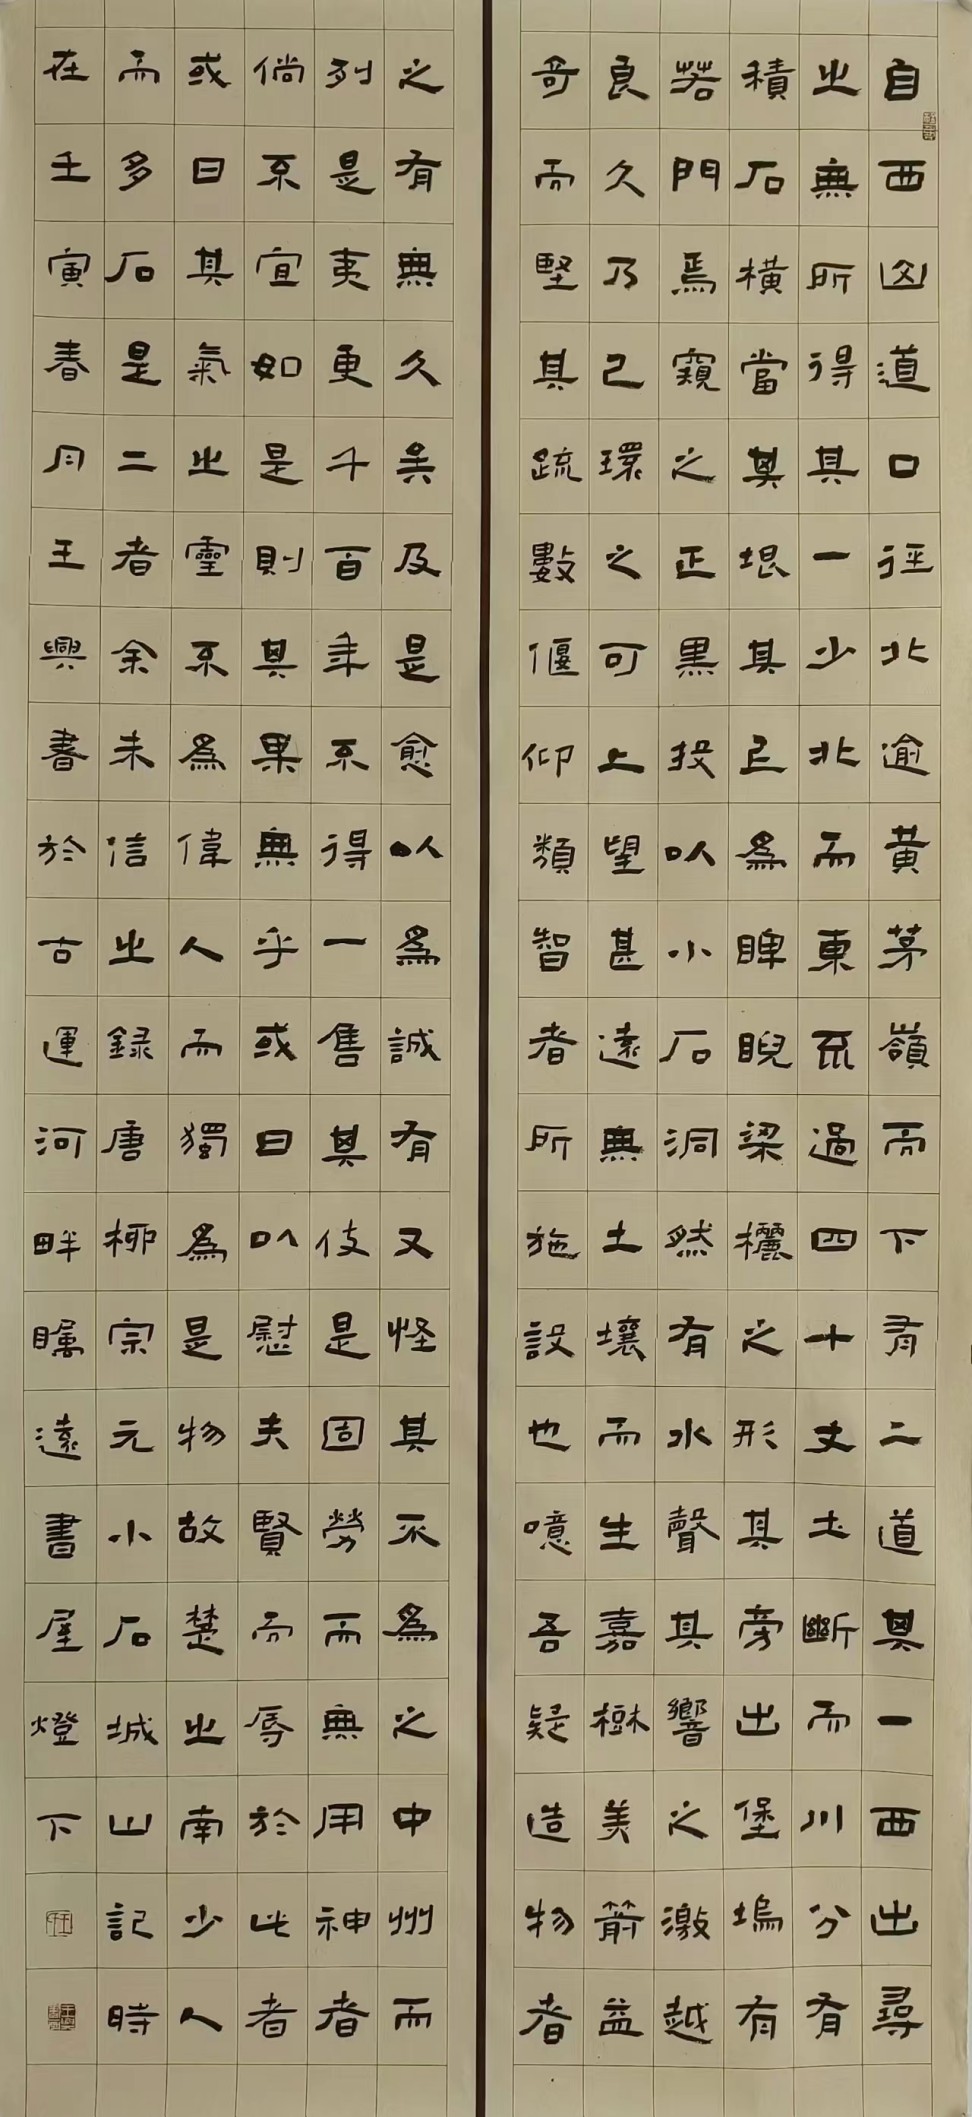 自西山道口徑北逾黄茅嶺而下有二道其一西出尋
之無所得其一少北而東不過四十丈土斷而川分有
積石橫當其垠其上為睥睨梁欐之形其旁出堡塢有
若門焉窺之正黑投以小石洞然有水聲其響之激越
良久乃已環之可上望甚遠無土壤而生嘉樹美箭益
奇而堅其疏數偃仰類智者所施設也噫吾疑造物者
之有無久矣及是愈以為誠有又怪其不為之中州而
列是夷更千百年不得一售其伎是固勞而無用神者
倘不宜如是則其果無乎或曰以慰夫賢而辱於此者
或曰其氣之靈不為偉人而獨為是物故楚之南少人
而多石是二者余未信之録唐柳宗元小石城山記時
在壬寅春月王興書於古運河畔矚遠書屋燈下